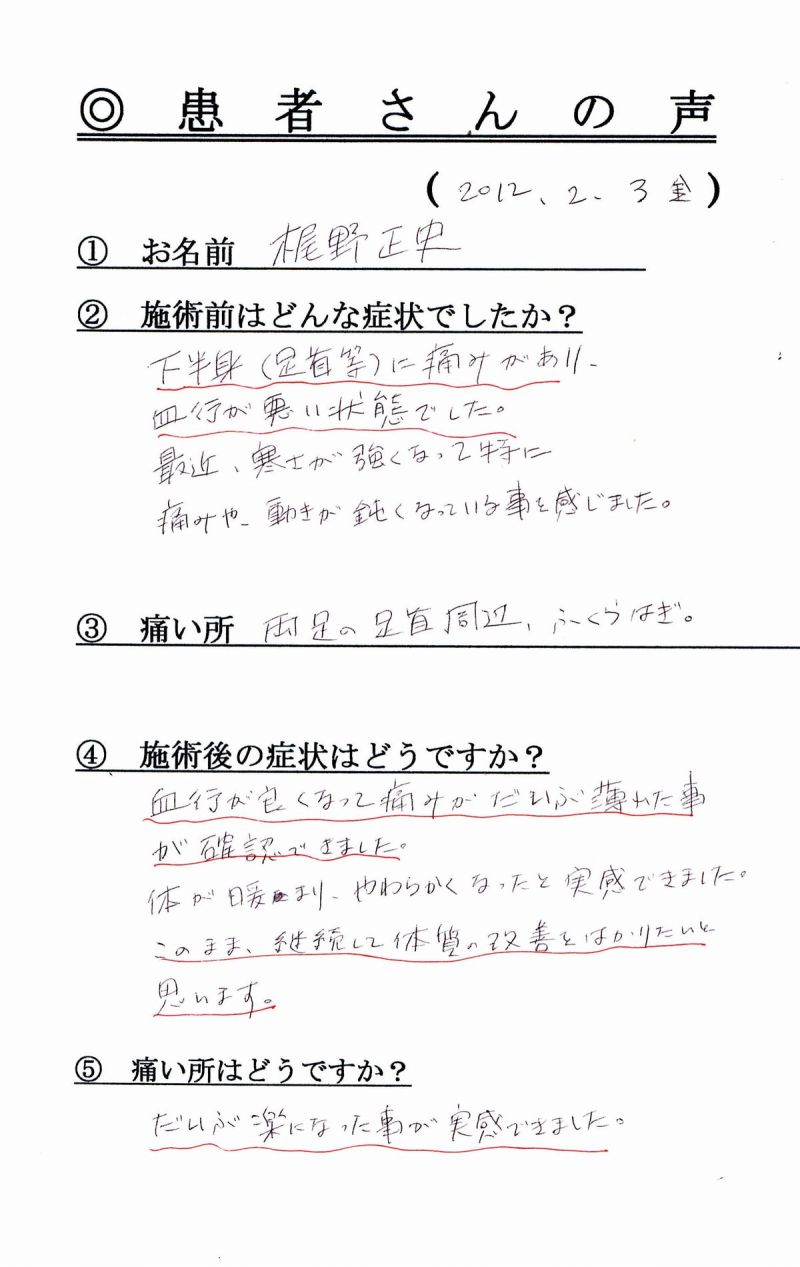 ◎患者さんの声
(2012、2、3金)
① お名前 梶野正史
② 施術前はどんな症状でしたか？
下半身(足首等)に痛みがあり、
血行が悪い状態でした。
最近、寒さが強くなって特に
痛みや、動きが鈍くなっている事を感じました。
③ 痛い所 両足の足首周辺、ふくらはぎ。
④ 施術後の症状はどうですか？
血行が良くなって痛みがだいぶ薄れた事
が確認できました。
体が暖まり、やわらかくなったと実感できました。
このまま、継続して体質の改善をはかりたいと
思います。
⑤ 痛い所はどうですか？
だいぶ楽になった事が実感できました。